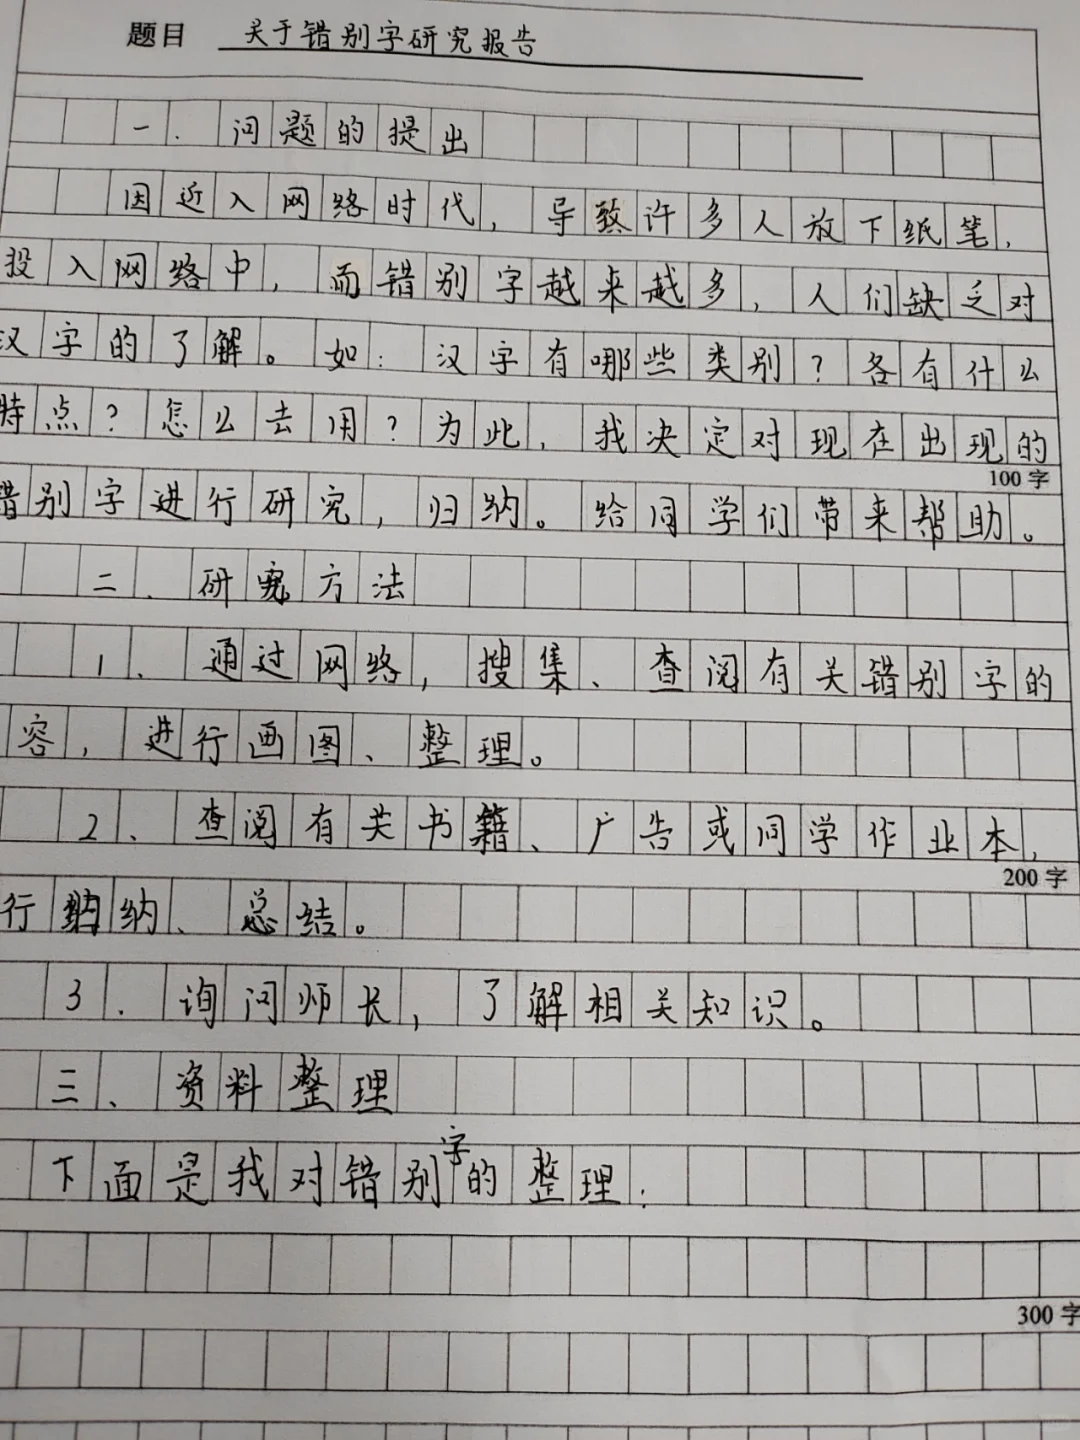 题目 关于错别字研究报告
一.问题的提出
因近入网络时代,导致许多人放下纸笔,
投入网络中,而错别字越来越多,人们缺乏对
汉字的了解。如:汉字有哪些类别?各有什么
特点?怎么去用?为此,我决定对现在出现的
100字
错别字进行研究,归纳。给同学们带来帮助。
二、研究方法
1、通过网络,搜集、查阅有关错别字的
容,进行画图、整理。
2、查阅有关书籍、广告或同学作业本,
200字
行纳、总结。
3.询问师长,了解相关知识。
三、资料整理
下面是我对错别字的整理:
300字